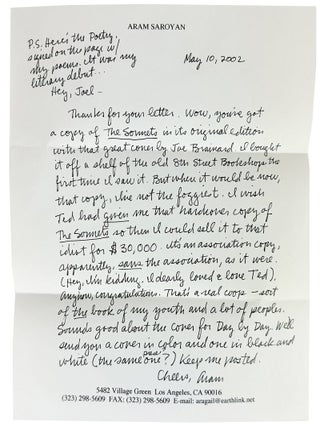 ARAM SAROYAN
P.S. Here's the Poetry,
signed on the page w/
my poems. It was my
literary debut...
May 10, 2002
Hey, Joel —
Thanks for your letter. Wow, you've got
a copy of The Sonnets in its original edition
with that great cover by Joe Brainard. I bought
it off a shelf of the old 8th Street Bookshop the
first time I saw it. But where it would be now,
that copy, I've not the foggiest. I wish
Ted had given me that hardcover copy of
The Sonnets so then I could sell it to that
idiot for $30,000. It's an association copy,
apparently, sans the association, as it were.
(Hey, I'm kidding. I dearly loved & love Ted).
Anyhow, congratulations. That's a real coop — sort
of the book of my youth and a lot of peoples.
Sounds good about the cover for Day by Day. We'll
send you a cover in color and one in black and
white (the same one?) Keep me posted.
Cheers, Aram
5482 Village Green Los Angeles, CA 90016
(323) 298-5609 FAX: (323) 298-5609 E-mail: aragail@earthlink.net